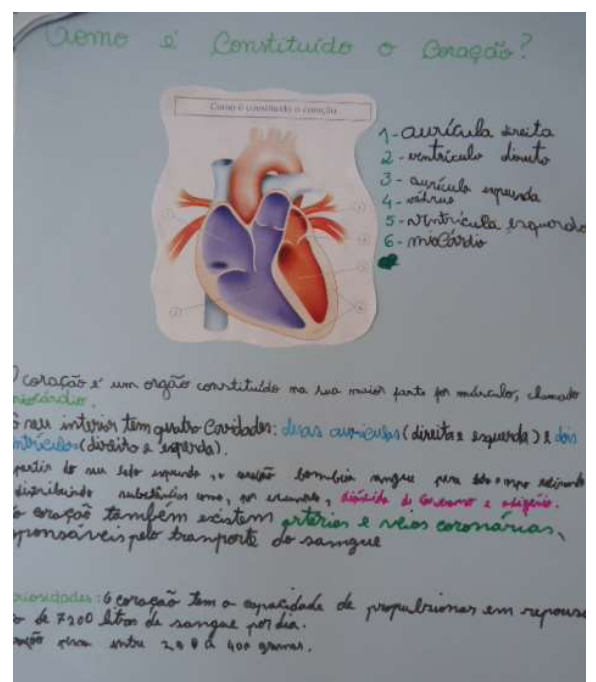 Como é Constituído o Coração?
Como é constituído o coração
1 - aurícula direita
2 - ventrículo direito
3 - aurícula esquerda
4 - válvulas
5 - ventrícula esquerdo
6 - miocárdio
O coração é um orgão constituído na sua maior parte por músculo, chamado
miocárdio.
No seu interior tem quatro Cavidades: duas aurículas (direita e esquerda) e dois
ventrículos (direito e esquerdo).
partir do seu lado esquerdo, o coração bombeia sangue para todo o corpo
distribuindo substâncias como, por exemplo, dióxido de Carbono e oxigénio.
o coração também existem artérias e veias coronárias,
sponsáveis pelo transporte do sangue
uriosidades: O coração tem a capacidade de propulsionar em repouso
de 7200 litros de sangue por dia.
ração pesa entre 200 a 400 gramas.